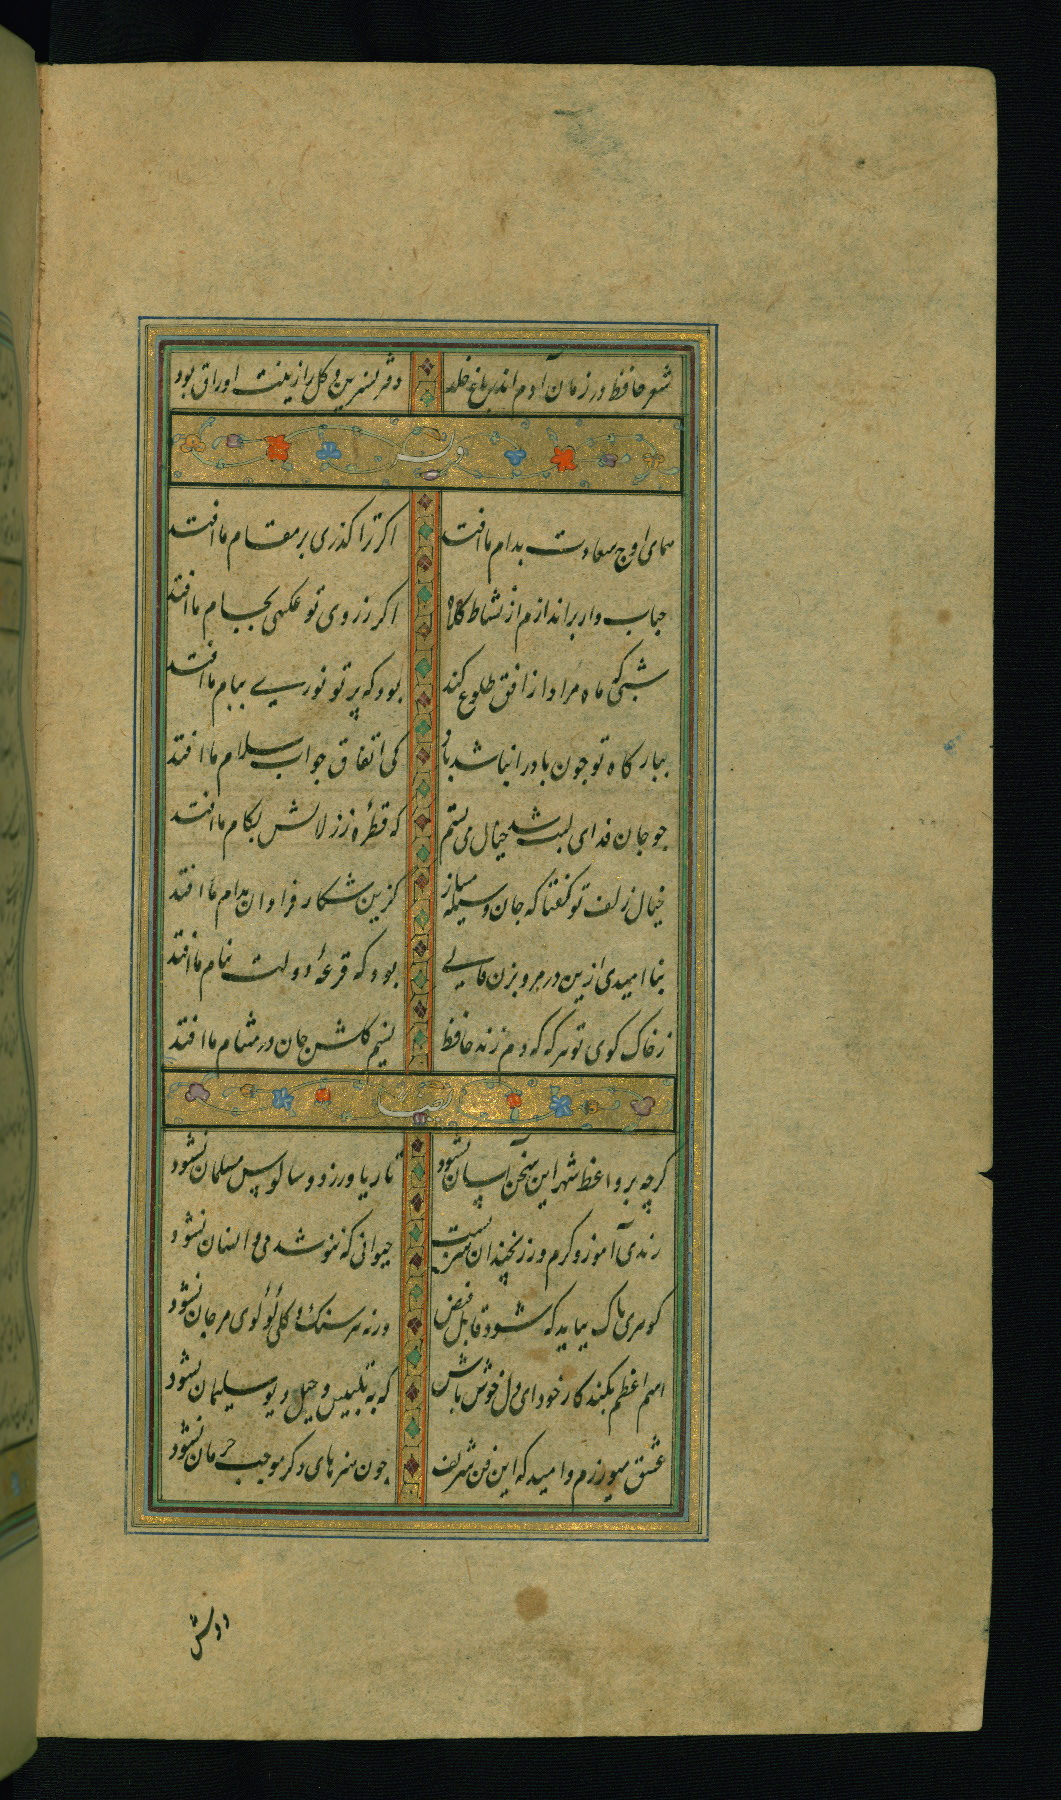 شعر حافظ در زمان آدم اندر باغ خلد دفتر نسرین و کل را زینت اوراق بود
همای اوج سعادت بدام ما افتد اکر ترا کذری بر مقام ما افتد
حباب وار براندازم از نشاط کلاه اکر ز روی تو عکسی بجام ما افتد
شبی که ماه مراد از افق طلوع کند بود که پرتو نوری ببام ما افتد
ببارکاه تو چون باد را نباشد بار کی اتفاق جواب سلام ما افتد
چو جان فدای لبت شد خیال می بستم که قطرهٔ ز زلالش بکام ما افتد
خیال زلف تو کفتا که جان وسیله مساز کزین شکار فراوان بدام ما افتد
بنا امیدی ازین در مرو بزن فالی بود که قرعهٔ دولت بنام ما افتد
ز خاک کوی تو هر که که دم زند حافظ نسیم کلشن جان در مشام ما افتد
کرچه بر واعظ شهر این سخن آسان نشود تا ریا ورزد و سالوس مسلمان نشود
رندی آموز و کرم ورز نه چندان هنرست حیوانی که ننوشد می و انسان نشود
کوهری پاک بباید که شود قابل فیض ورنه هر سنک و کلی لؤلؤی مرجان نشود
اسم اعظم بکند کار خود ای دل خوش باش که به تلبیس و حیل دیو سلیمان نشود
عشق میورزم و امید که این فن شریف چون هنرهای دکر موجب حرمان نشود
دوش